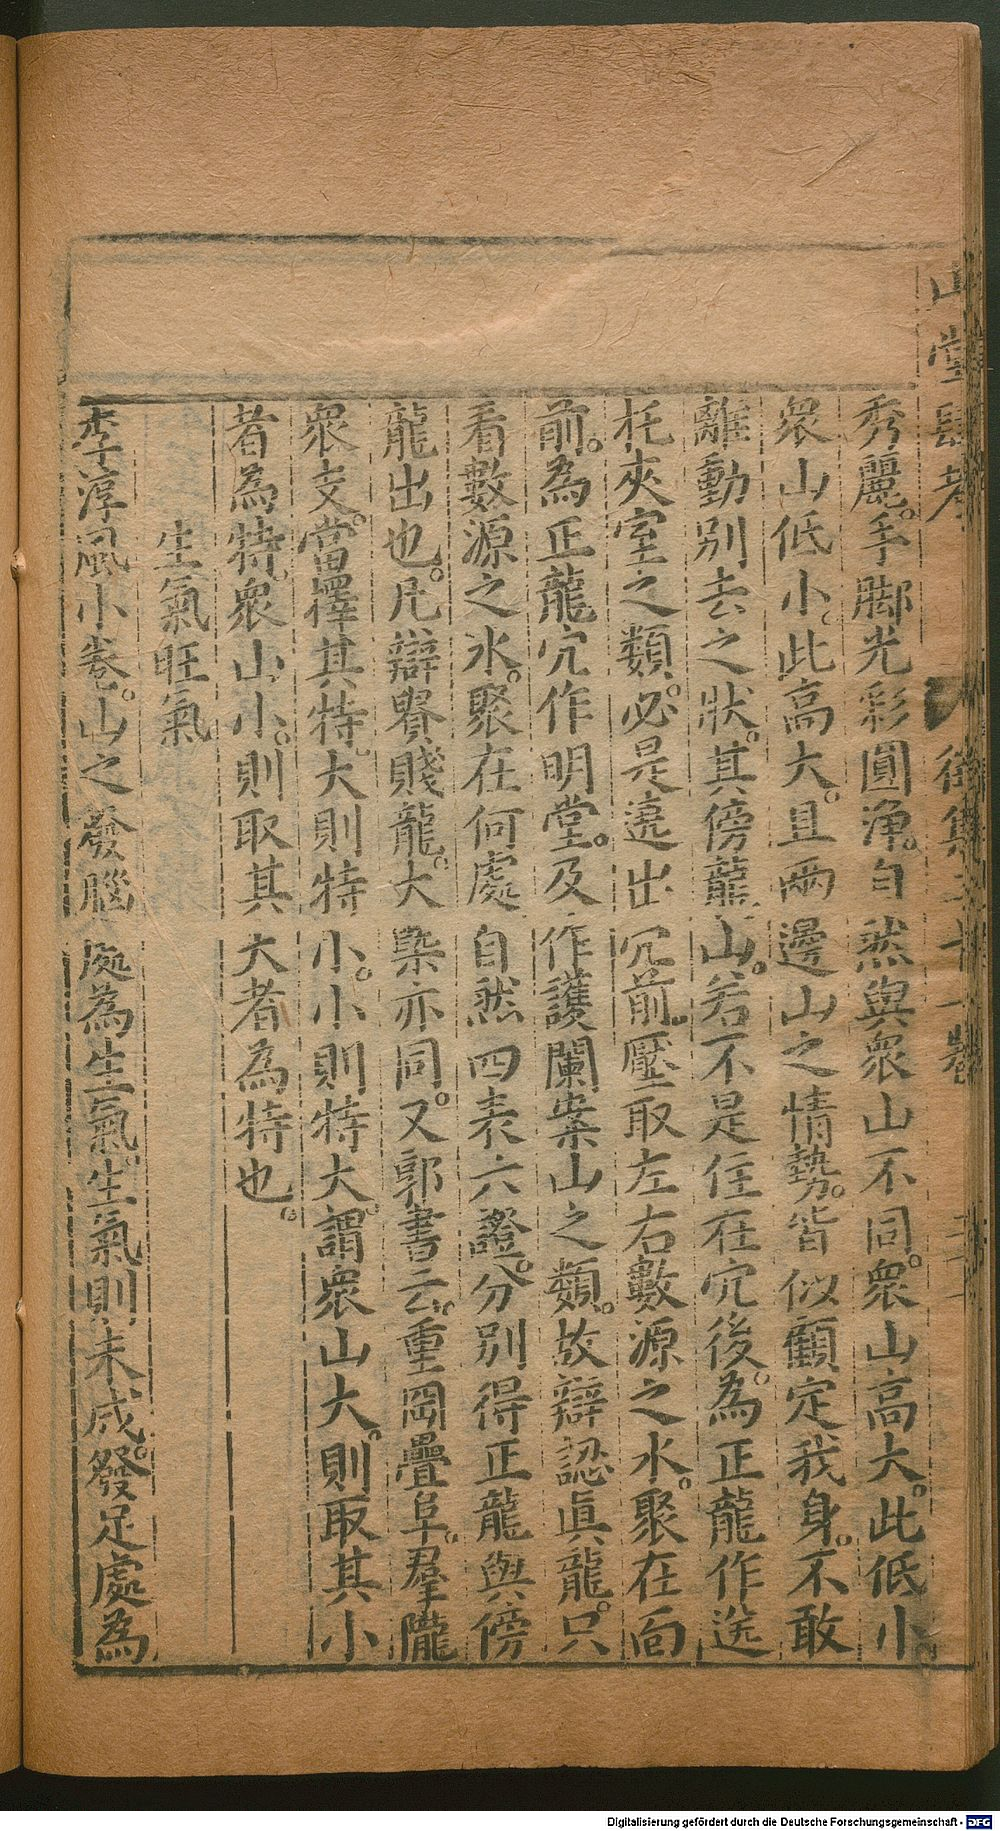 山堂肆考
秀麗。手脚光彩圓淨。自然與衆山不同。衆山高大。此低小。
衆山低小。此高大。且兩邊山之情勢。皆似顧定我身。不敢
離動別去之狀。其傍龍山。若不是住在穴後。為正龍作送
托夾室之類。必是遶出穴前。壓取左右數源之水。聚在面
前。為正龍穴作明堂。及作護闌案山之類。故辯認眞龍。只
看數源之水。聚在何處。自然四表六證。分別得正龍與傍
龍出也。凡辯貴賤龍。大槩亦同。又郭書云。重岡疊阜。羣隴
衆支。當擇其特。大則特小。小則特大。謂衆山大。則取其小
者為特。衆山小。則取其大者為特也。
生氣旺氣
李淳風小卷。山之發腦處為生氣。生氣則未成。發足處為
Digitalisierung gefördert durch die Deutsche Forschungsgemeinschaft - DFG